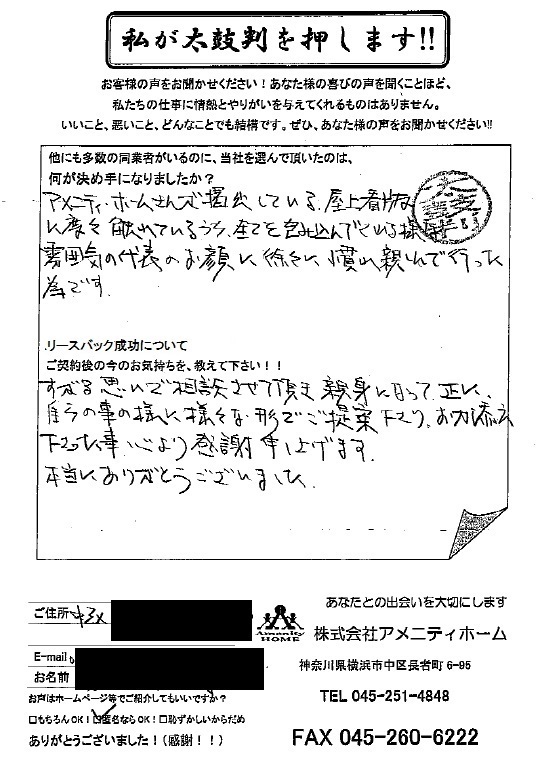 私が太鼓判を押します!!
お客様の声をお聞かせください！あなた様の喜びの声を聞くことほど、
私たちの仕事に情熱とやりがいを与えてくれるものはありません。
いいこと、悪いこと、どんなことでも結構です。ぜひ、あなた様の声をお聞かせください!!
他にも多数の同業者がいるのに、当社を選んで頂いたのは、
何が決め手になりましたか？
アメニティ・ホームさんが掲出している、屋上看板
に度々触れているうち、全てを包み込んでいる様な
雰囲気の代表のお顔に徐々に慣れ親しんで行った
為です。
リースバック成功について
ご契約後の今のお気持ちを、教えて下さい！！
すがる思いで相談させて頂き親身に成って正に、
自分の事の様に様々な形でご提案下さり、お力添え
下さった事、心より感謝申し上げます。
本当にありがとうございました。
ご住所
E-mail
お名前
お声はホームページ等でご紹介してもいいですか？
□もちろんOK！☑匿名ならOK！□恥ずかしいからだめ
ありがとうございました！（感謝！！）
Amenity
HOME
あなたとの出会いを大切にします
株式会社アメニティホーム
神奈川県横浜市中区長者町 6-95
TEL 045-251-4848
FAX 045-260-6222